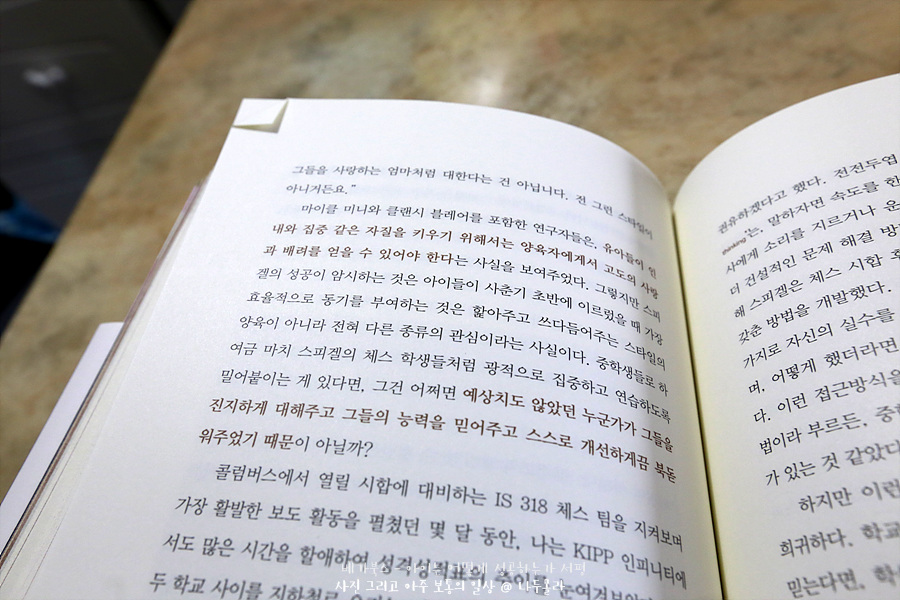 그들을 사랑하는 엄마처럼 대한다는 건 아닙니다. 전 그런 스타일이
아니거든요."
마이클 미니와 클랜시 블레어를 포함한 연구자들은, 유아들이 인
내와 집중 같은 자질을 키우기 위해서는 양육자에게서 고도의 사랑
과 배려를 얻을 수 있어야 한다는 사실을 보여주었다. 그렇지만 스피
겔의 성공이 암시하는 것은 아이들이 사춘기 초반에 이르렀을 때 가장
효율적으로 동기를 부여하는 것은 핥아주고 쓰다듬어주는 스타일의
양육이 아니라 전혀 다른 종류의 관심이라는 사실이다. 중학생들로 하
여금 마치 스피겔의 체스 학생들처럼 광적으로 집중하고 연습하도록
밀어붙이는 게 있다면, 그건 어쩌면 예상치도 않았던 누군가가 그들을
진지하게 대해주고 그들의 능력을 믿어주고 스스로 개선하게끔 북돋
워주었기 때문이 아닐까?
콜럼버스에서 열릴 시합에 대비하는 IS 318 체스 팀을 지켜보며
가장 활발한 보도 활동을 펼쳤던 몇 달 동안, 나는 KIPP 인피니티에
서도 많은 시간을 할애하여
두 학교 사이를 지하철로
권유하겠다고 했다. 전전두엽
thinking'은, 말하자면 속도를 한
사에게 소리를 지르거나 운
더 건설적인 문제 해결 방
해 스피겔은 체스 시합 후
갖춘 방법을 개발했다.
가지로 자신의 실수를
며, 어떻게 했더라면
다. 이런 접근방식을
법이라 부르든, 중
가 있는 것 같았다
하지만 이런
희귀하다. 학교
믿는다면, 학
사진 그리고 아주 보통의 일상 @